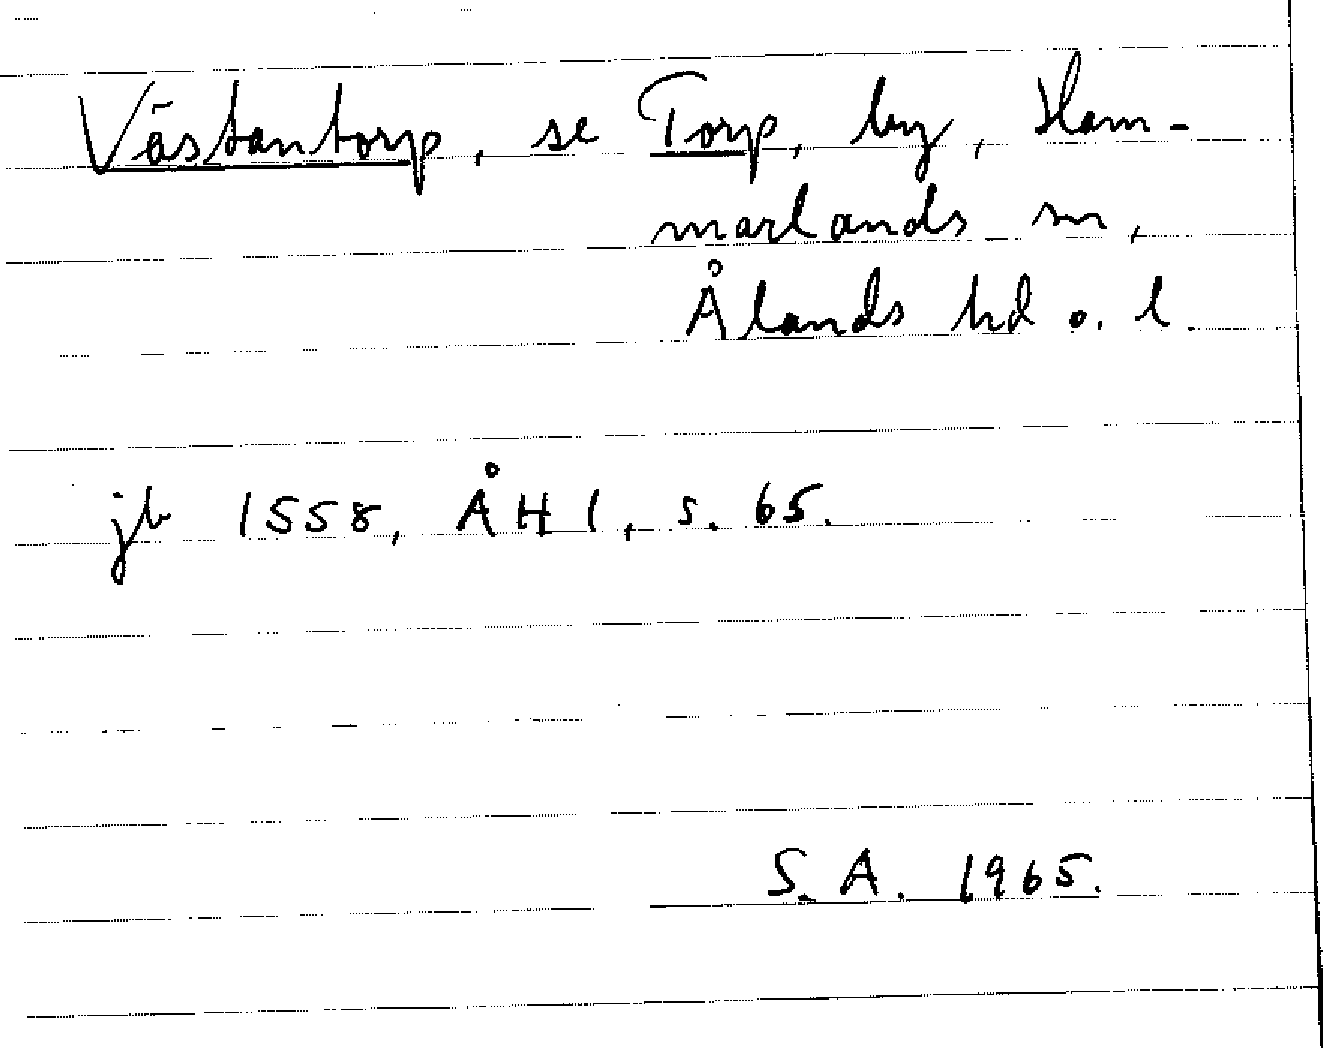 Västantorp, se Torp, by, Ham-
marlands sn,
Ålands hd o. l.
jb 1558, ÅH I, s. 65.
S. A. 1965.